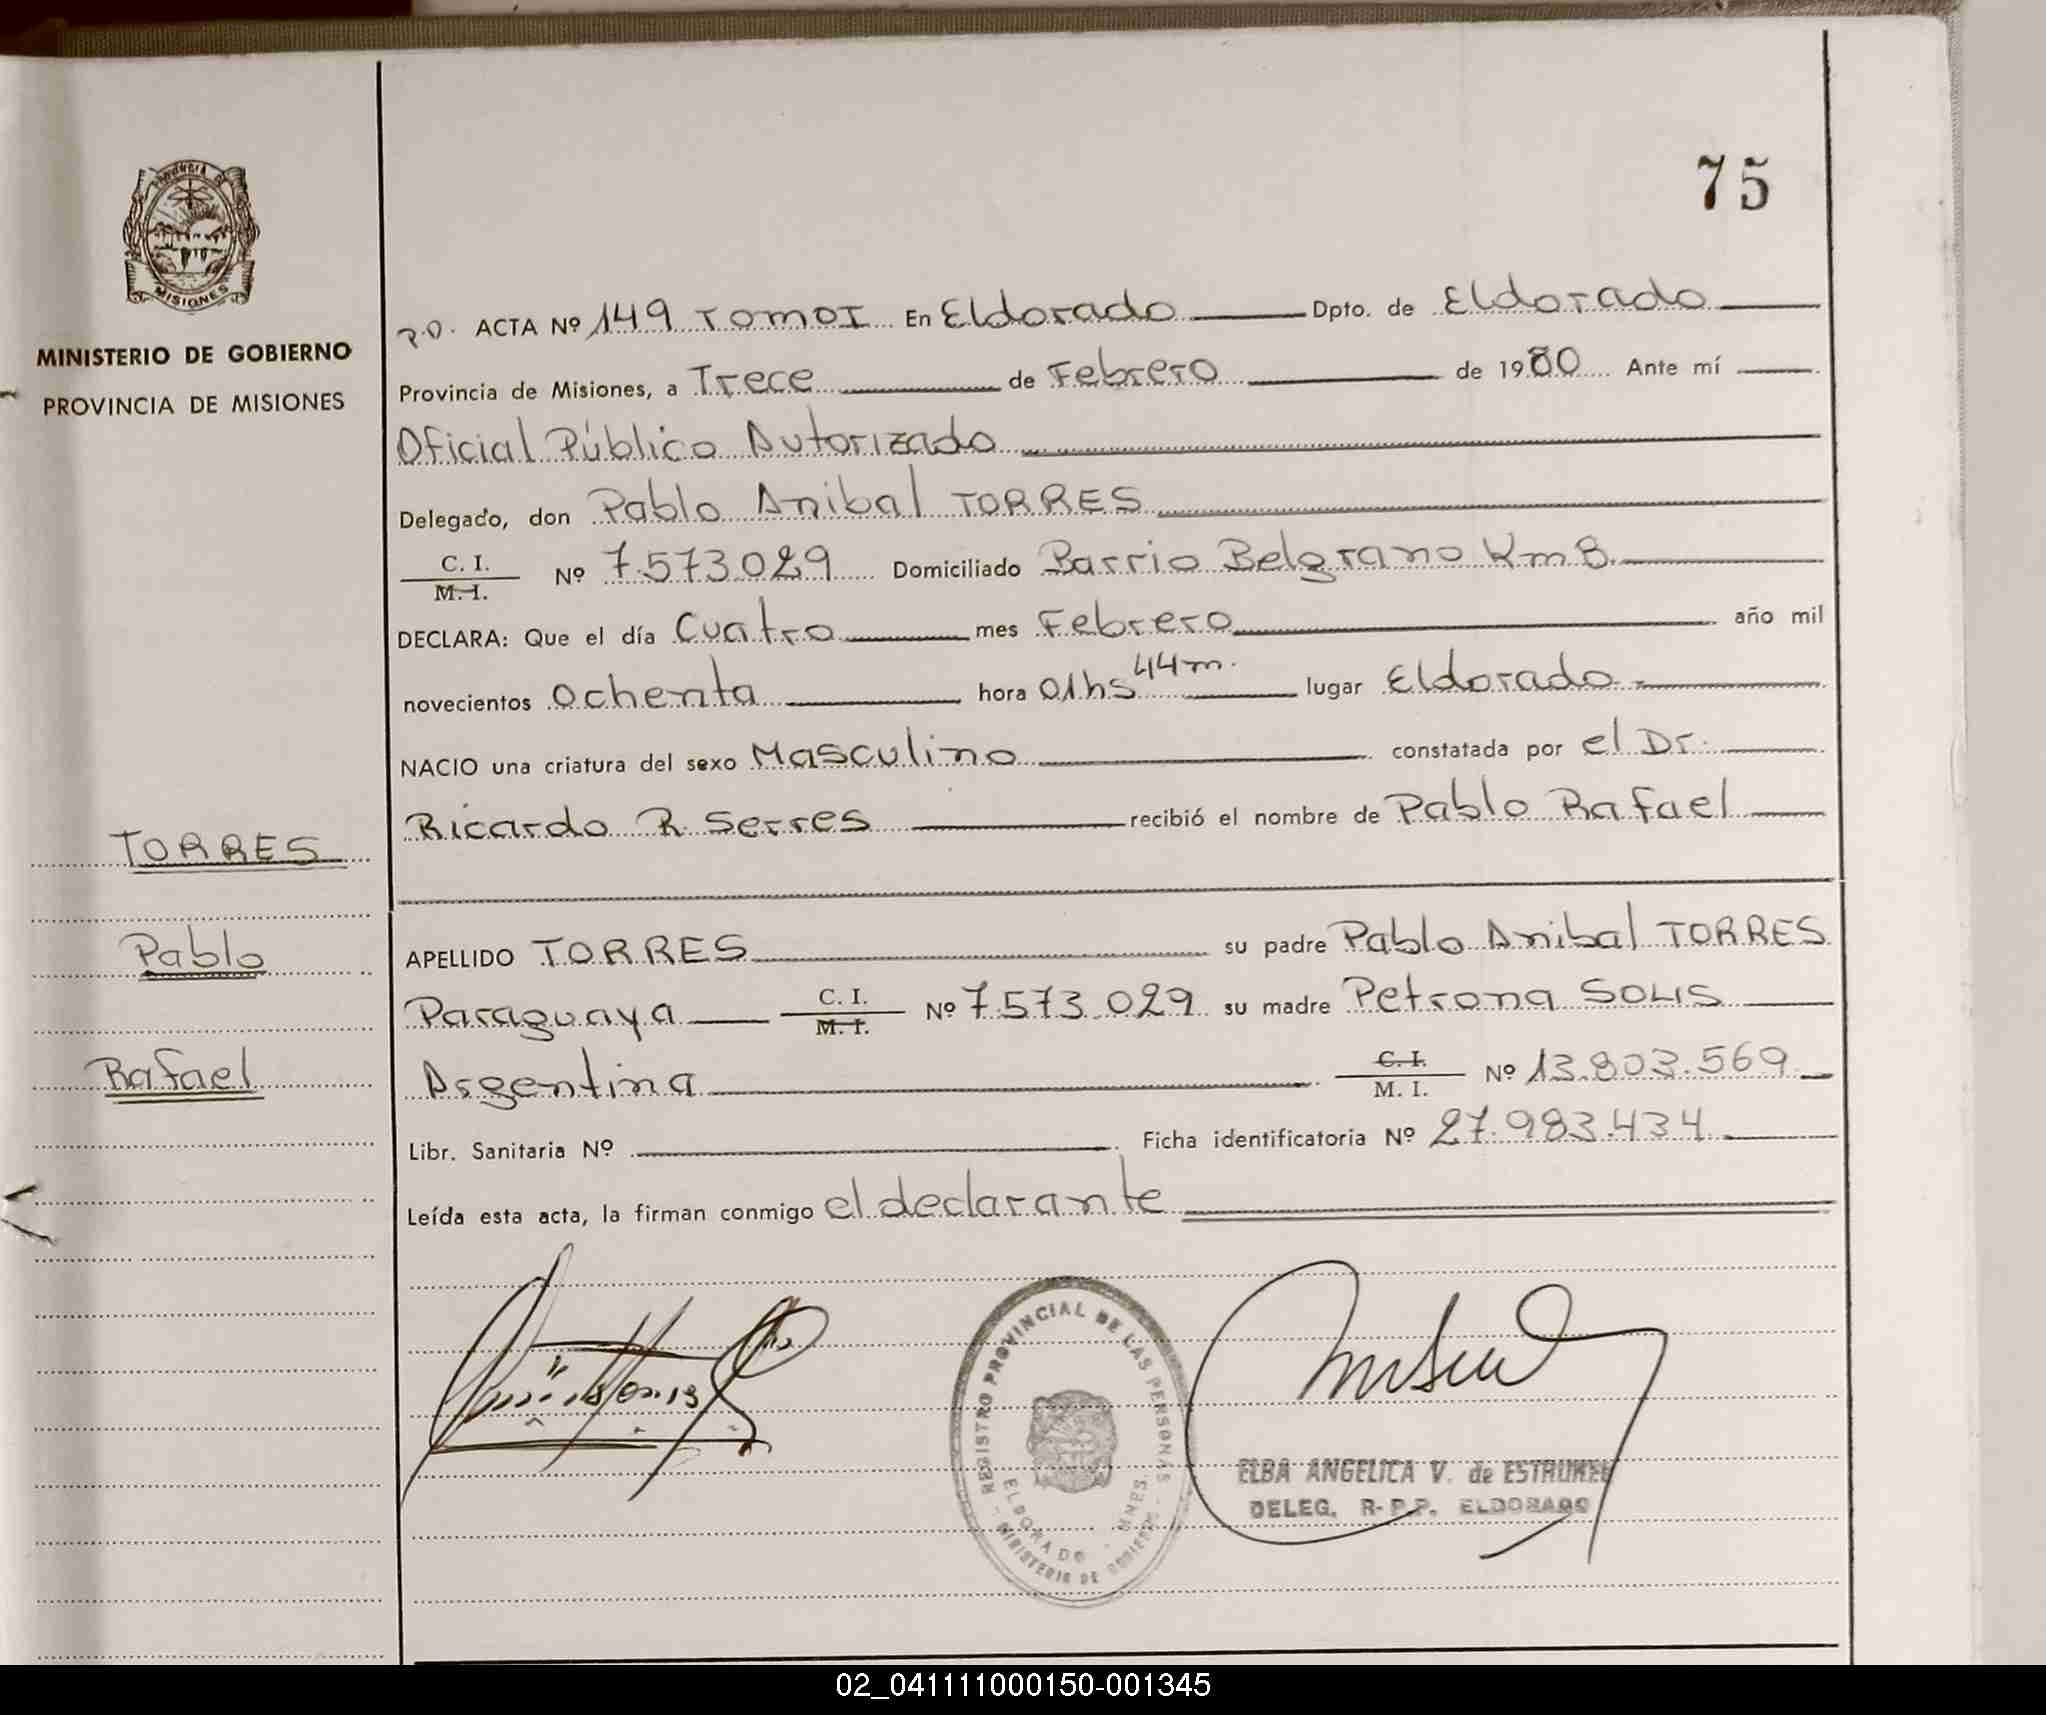 75
PROVINCIA DE
MISIONES
MINISTERIO DE GOBIERNO
PROVINCIA DE MISIONES
P.D. ACTA Nº 149 TOMO I En Eldorado Dpto. de Eldorado
Provincia de Misiones, a Trece de Febrero de 1980 Ante mí
Oficial Público Autorizado
Delegado, don Pablo Anibal TORRES
C. I.
M. I. Nº 7.573.029 Domiciliado Barrio Belgrano Km 8
DECLARA: Que el día Cuatro mes Febrero año mil
novecientos Ochenta hora 01hs 44m. lugar Eldorado
NACIO una criatura del sexo Masculino constatada por el Dr.
Ricardo R. Serres recibió el nombre de Pablo Rafael
TORRES
Pablo
Rafael
APELLIDO TORRES su padre Pablo Anibal TORRES
Paraguaya C. I. M. I. Nº 7.573.029 su madre Petrona SOLIS
Argentina C. I. M. I. Nº 13.803.569
Libr. Sanitaria Nº Ficha identificatoria Nº 27.983.434
Leída esta acta, la firman conmigo el declarante
REGISTRO PROVINCIAL DE LAS PERSONAS
ELDORADO - MNES.
MINISTERIO DE GOBIERNO
ELBA ANGELICA V. de
DELEG. R.P.P. ELDORADO
02_041111000150-001345